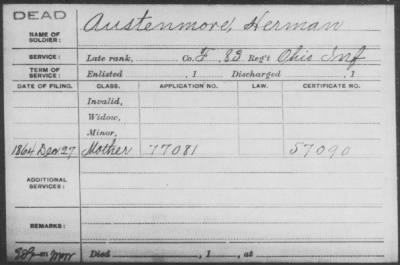 DEAD
NAME OF SOLDIER: Austenmore, Herman
SERVICE: Late rank, Co. F, 83 Reg't Ohio Inf
TERM OF SERVICE: Enlisted , 1 Discharged , 1
DATE OF FILING. CLASS. APPLICATION NO. LAW. CERTIFICATE NO.
Invalid,
Widow,
Minor,
1864 Dec 27 Mother 77081 57090
ADDITIONAL SERVICES:
REMARKS:
Died , 1 , at